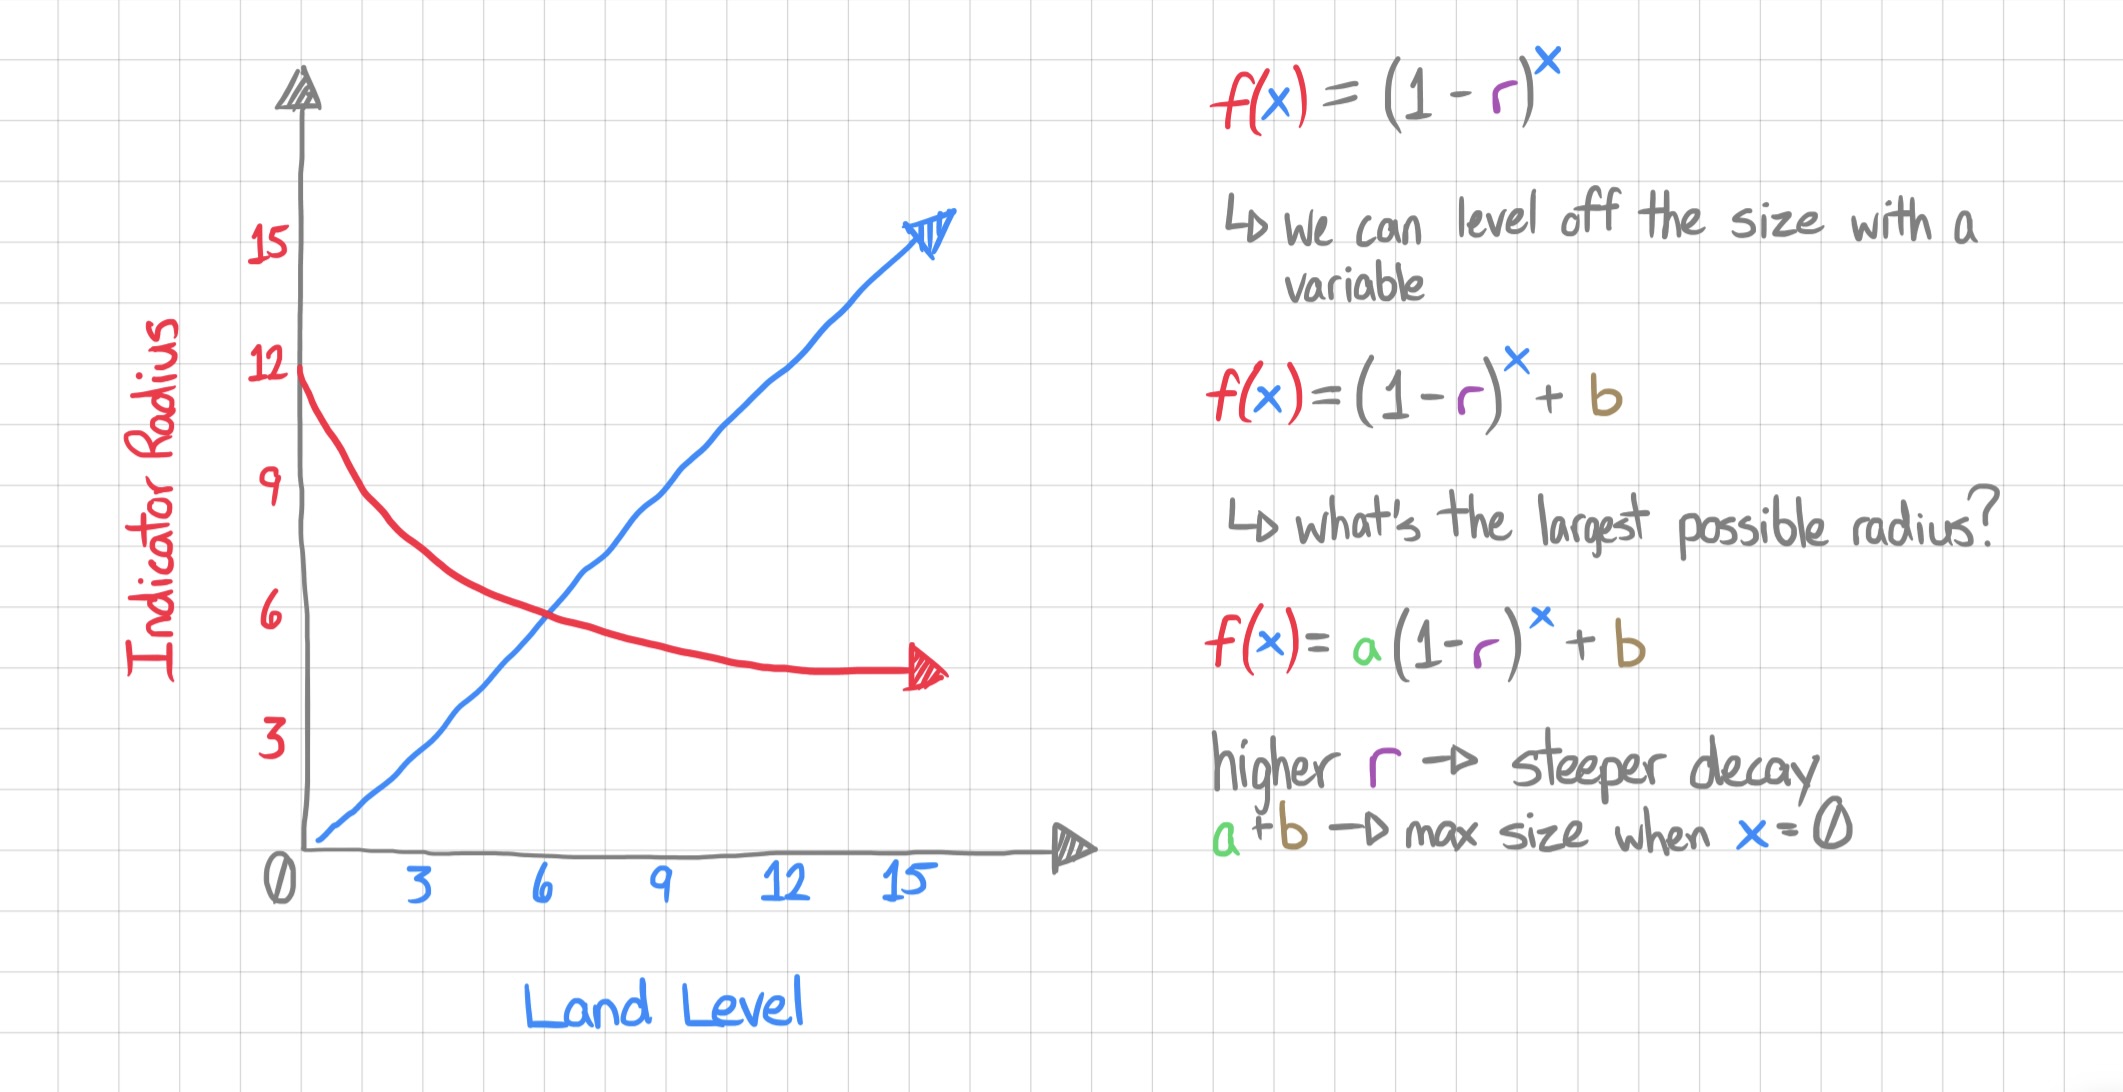 15
12
9
6
3
0
3 6 9 12 15
Indicator Radius
Land Level
f(x) = (1 - r)^x
↳ we can level off the size with a
variable
f(x) = (1 - r)^x + b
↳ what's the largest possible radius?
f(x) = a(1 - r)^x + b
higher r → steeper decay
a + b → max size when x = 0